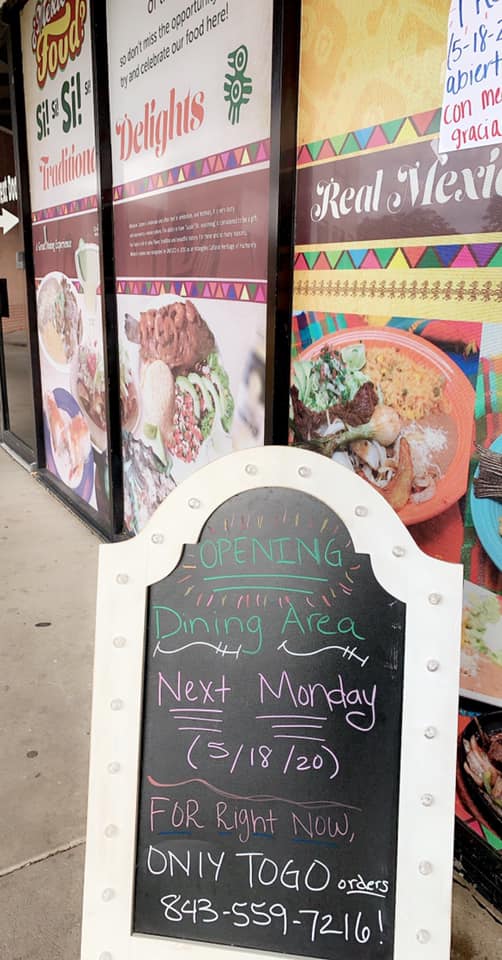 Food!
Si! Si! Si!
Tradition
A Great Dining Experience
so don't miss the opportunity
try and celebrate our food here!
Delights
Real Mexi
(5-18-2
abiert
con me
gracia
OPENING
Dining Area
Next Monday
(5/18/20)
FOR Right Now,
ONlY TOGO orders
843-559-7216!